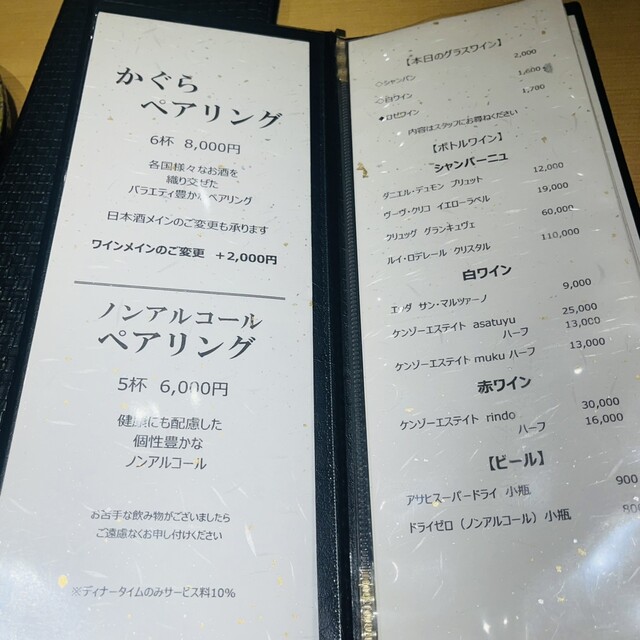 かぐら
ペアリング
6杯 8,000円
各国様々なお酒を
織り交ぜた
バラエティ豊かなペアリング
日本酒メインのご変更も承ります
ワインメインのご変更 +2,000円
ノンアルコール
ペアリング
5杯 6,000円
健康にも配慮した
個性豊かな
ノンアルコール
お苦手な飲み物がございましたら
ご遠慮なくお申し付けください
※ディナータイムのみサービス料10%
【本日のグラスワイン】
◇シャンパン 2,000
◇白ワイン 1,600
◆ロゼワイン 1,700
内容はスタッフにお尋ねください
【ボトルワイン】
シャンパーニュ
ダニエル・デュモン ブリュット 12,000
ヴーヴ・クリコ イエローラベル 19,000
クリュッグ グランキュヴェ 60,000
ルイ・ロデレール クリスタル 110,000
白ワイン
エッダ サン・マルツァーノ 9,000
ケンゾーエステイト asatuyu 25,000
ハーフ 13,000
ケンゾーエステイト muku ハーフ 13,000
赤ワイン
ケンゾーエステイト rindo 30,000
ハーフ 16,000
【ビール】
アサヒスーパードライ 小瓶 900
ドライゼロ（ノンアルコール）小瓶